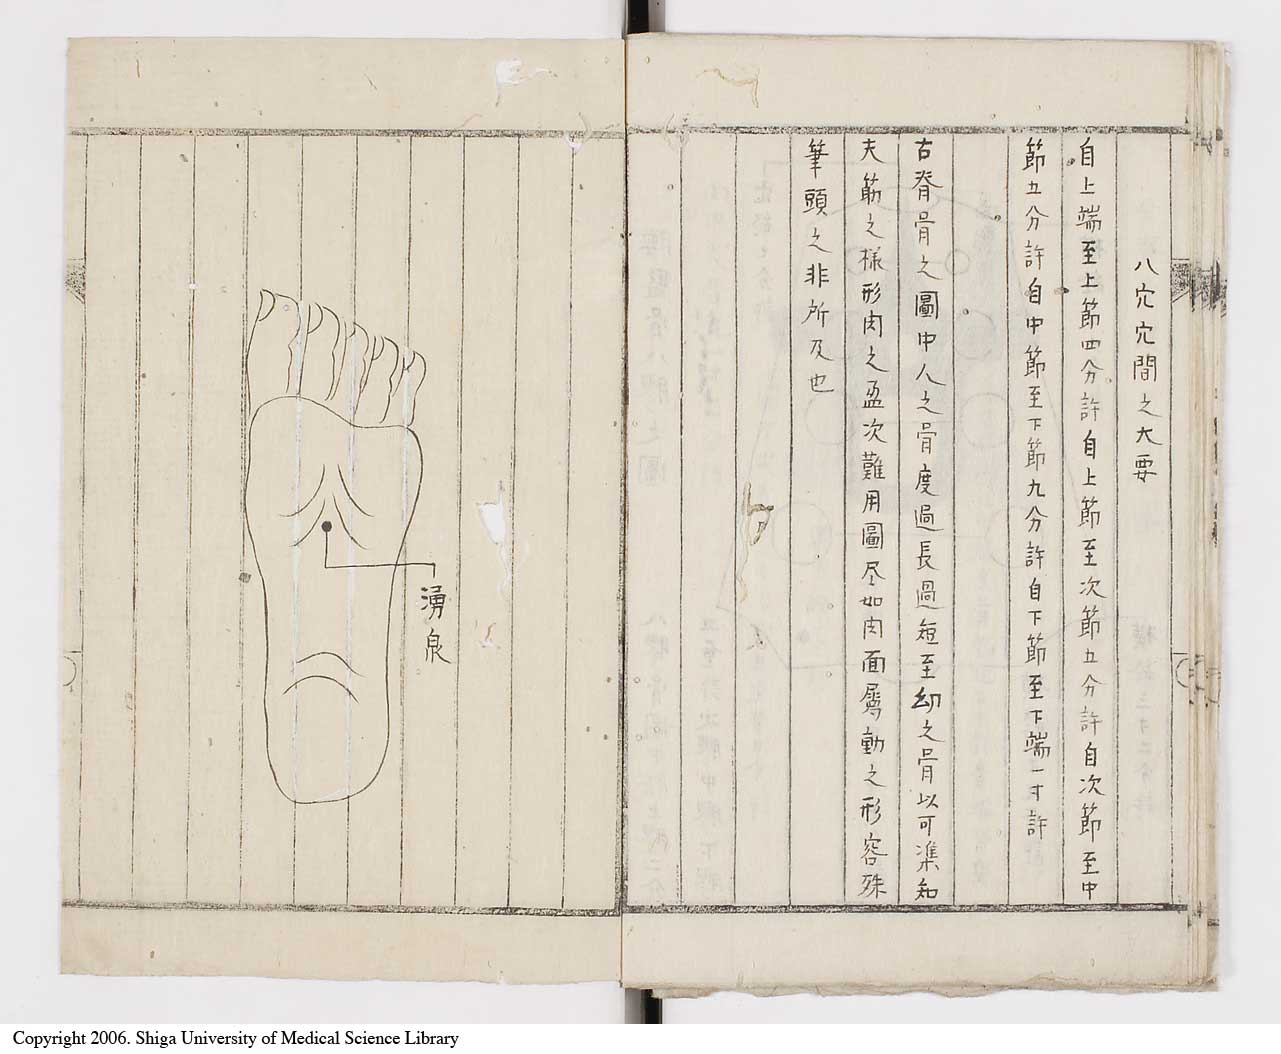 八穴穴間之大要
自上端至上節四分許自上節至次節五分許自次節至中
節五分許自中節至下節九分許自下節至下端一寸許
古脊骨之圖中人之骨度過長過短至幼之骨以可準知
夫筋之様形肉之盈次難用圖尽如肉面属動之形容殊
筆頭之非所及也
湧泉
Copyright 2006. Shiga University of Medical Science Library